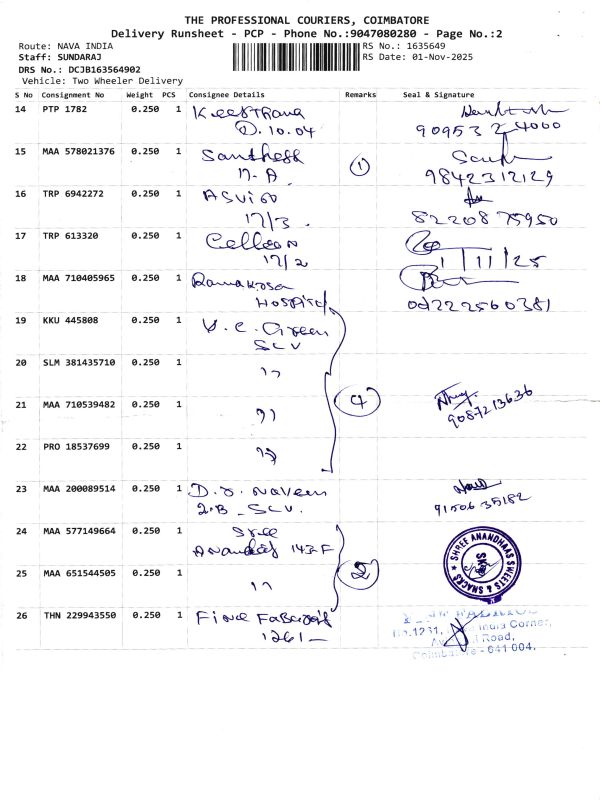 THE PROFESSIONAL COURIERS, COIMBATORE
Delivery Runsheet - PCP - Phone No.:9047080280 - Page No.:2
Route: NAVA INDIA
RS No.: 1635649
Staff: SUNDARAJ
RS Date: 01-Nov-2025
DRS No.: DCJB163564902
Vehicle: Two Wheeler Delivery
S No Consignment No Weight PCS Consignee Details Remarks Seal & Signature
14 PTP 1782 0.250 1
D. 10.04
909532 4000
15 MAA 578021376 0.250 1 Santhosh
17-A
1
9842312129
16 TRP 6942272 0.250 1 Asvin
17/3.
82208 75950
17 TRP 613320 0.250 1
17/2
1/11/25
18 MAA 710405965 0.250 1 Ramakrishna
Hospital
04222560381
19 KKU 445808 0.250 1 V.C. Green
SLV
20 SLM 381435710 0.250 1 "
4
21 MAA 710539482 0.250 1 "
9087213636
22 PRO 18537699 0.250 1 "
23 MAA 200089514 0.250 1 D.J. Naveen
2.B - SLV.
91506 35182
24 MAA 577149664 0.250 1 Sree
143-F
2
SHREE ANANDHAAS SWEETS & SNACKS
25 MAA 651544505 0.250 1 "
26 THN 229943550 0.250 1 Fine Fabrics
1261 -
India Corner,
Road,
Coimbatore - 641 004.